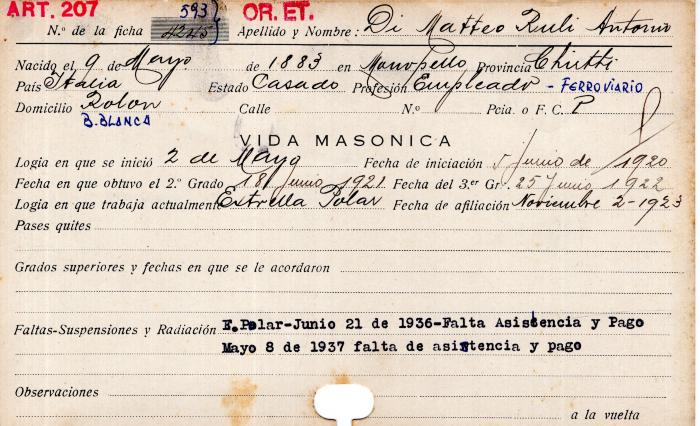 ART. 207 593 OR. ET.
N.º de la ficha 4245 Apellido y Nombre: Di Matteo Ruli Antonio
Nacido el 9 de Mayo de 1883 en Manopello Provincia Chietti
País Italia Estado Casado Profesión Empleado - FERROVIARIO
Domicilio Rolon Calle N.º Pcia. o F. C. P
B. BLANCA
VIDA MASONICA
Logia en que se inició 2 de Mayo Fecha de iniciación 5 Junio de 1920
Fecha en que obtuvo el 2.º Grado 18 Junio 1921 Fecha del 3.er Gr. 25 Junio 1922
Logia en que trabaja actualmente Estrella Polar Fecha de afiliación Noviembre 2-1923
Pases quites
Grados superiores y fechas en que se le acordaron
Faltas-Suspensiones y Radiación E.Polar-Junio 21 de 1936-Falta Asistencia y Pago
Mayo 8 de 1937 falta de asistencia y pago
Observaciones
a la vuelta